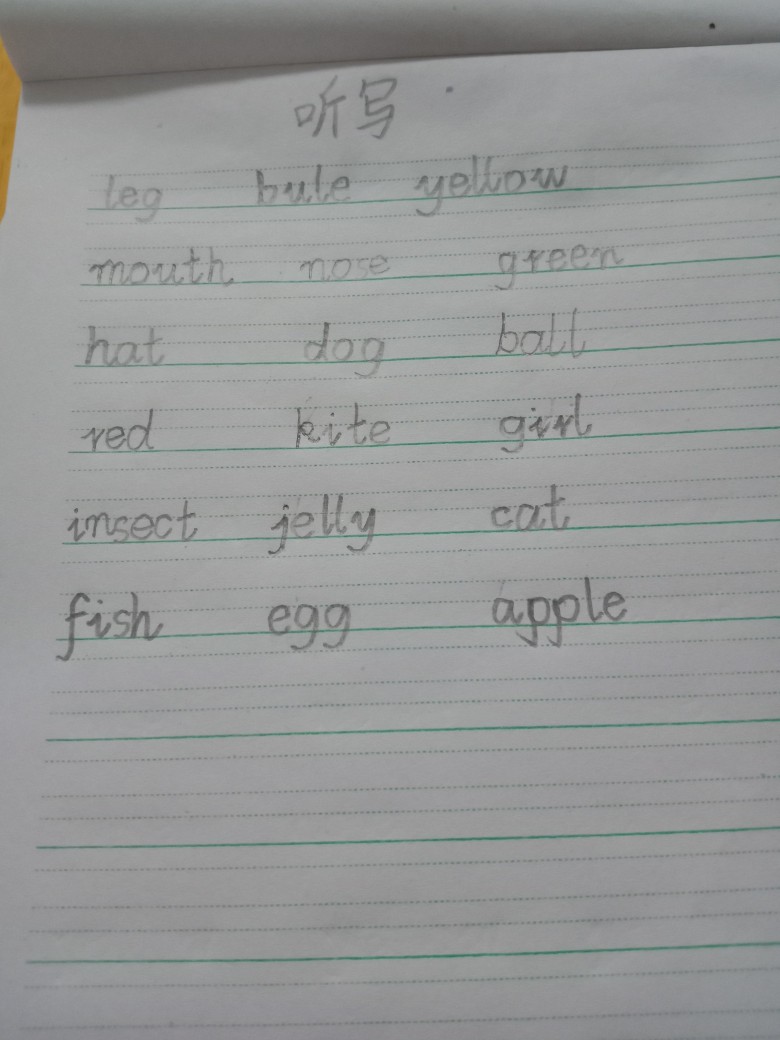 听写
leg bule yellow
mouth nose green
hat dog ball
red kite girl
insect jelly cat
fish egg apple